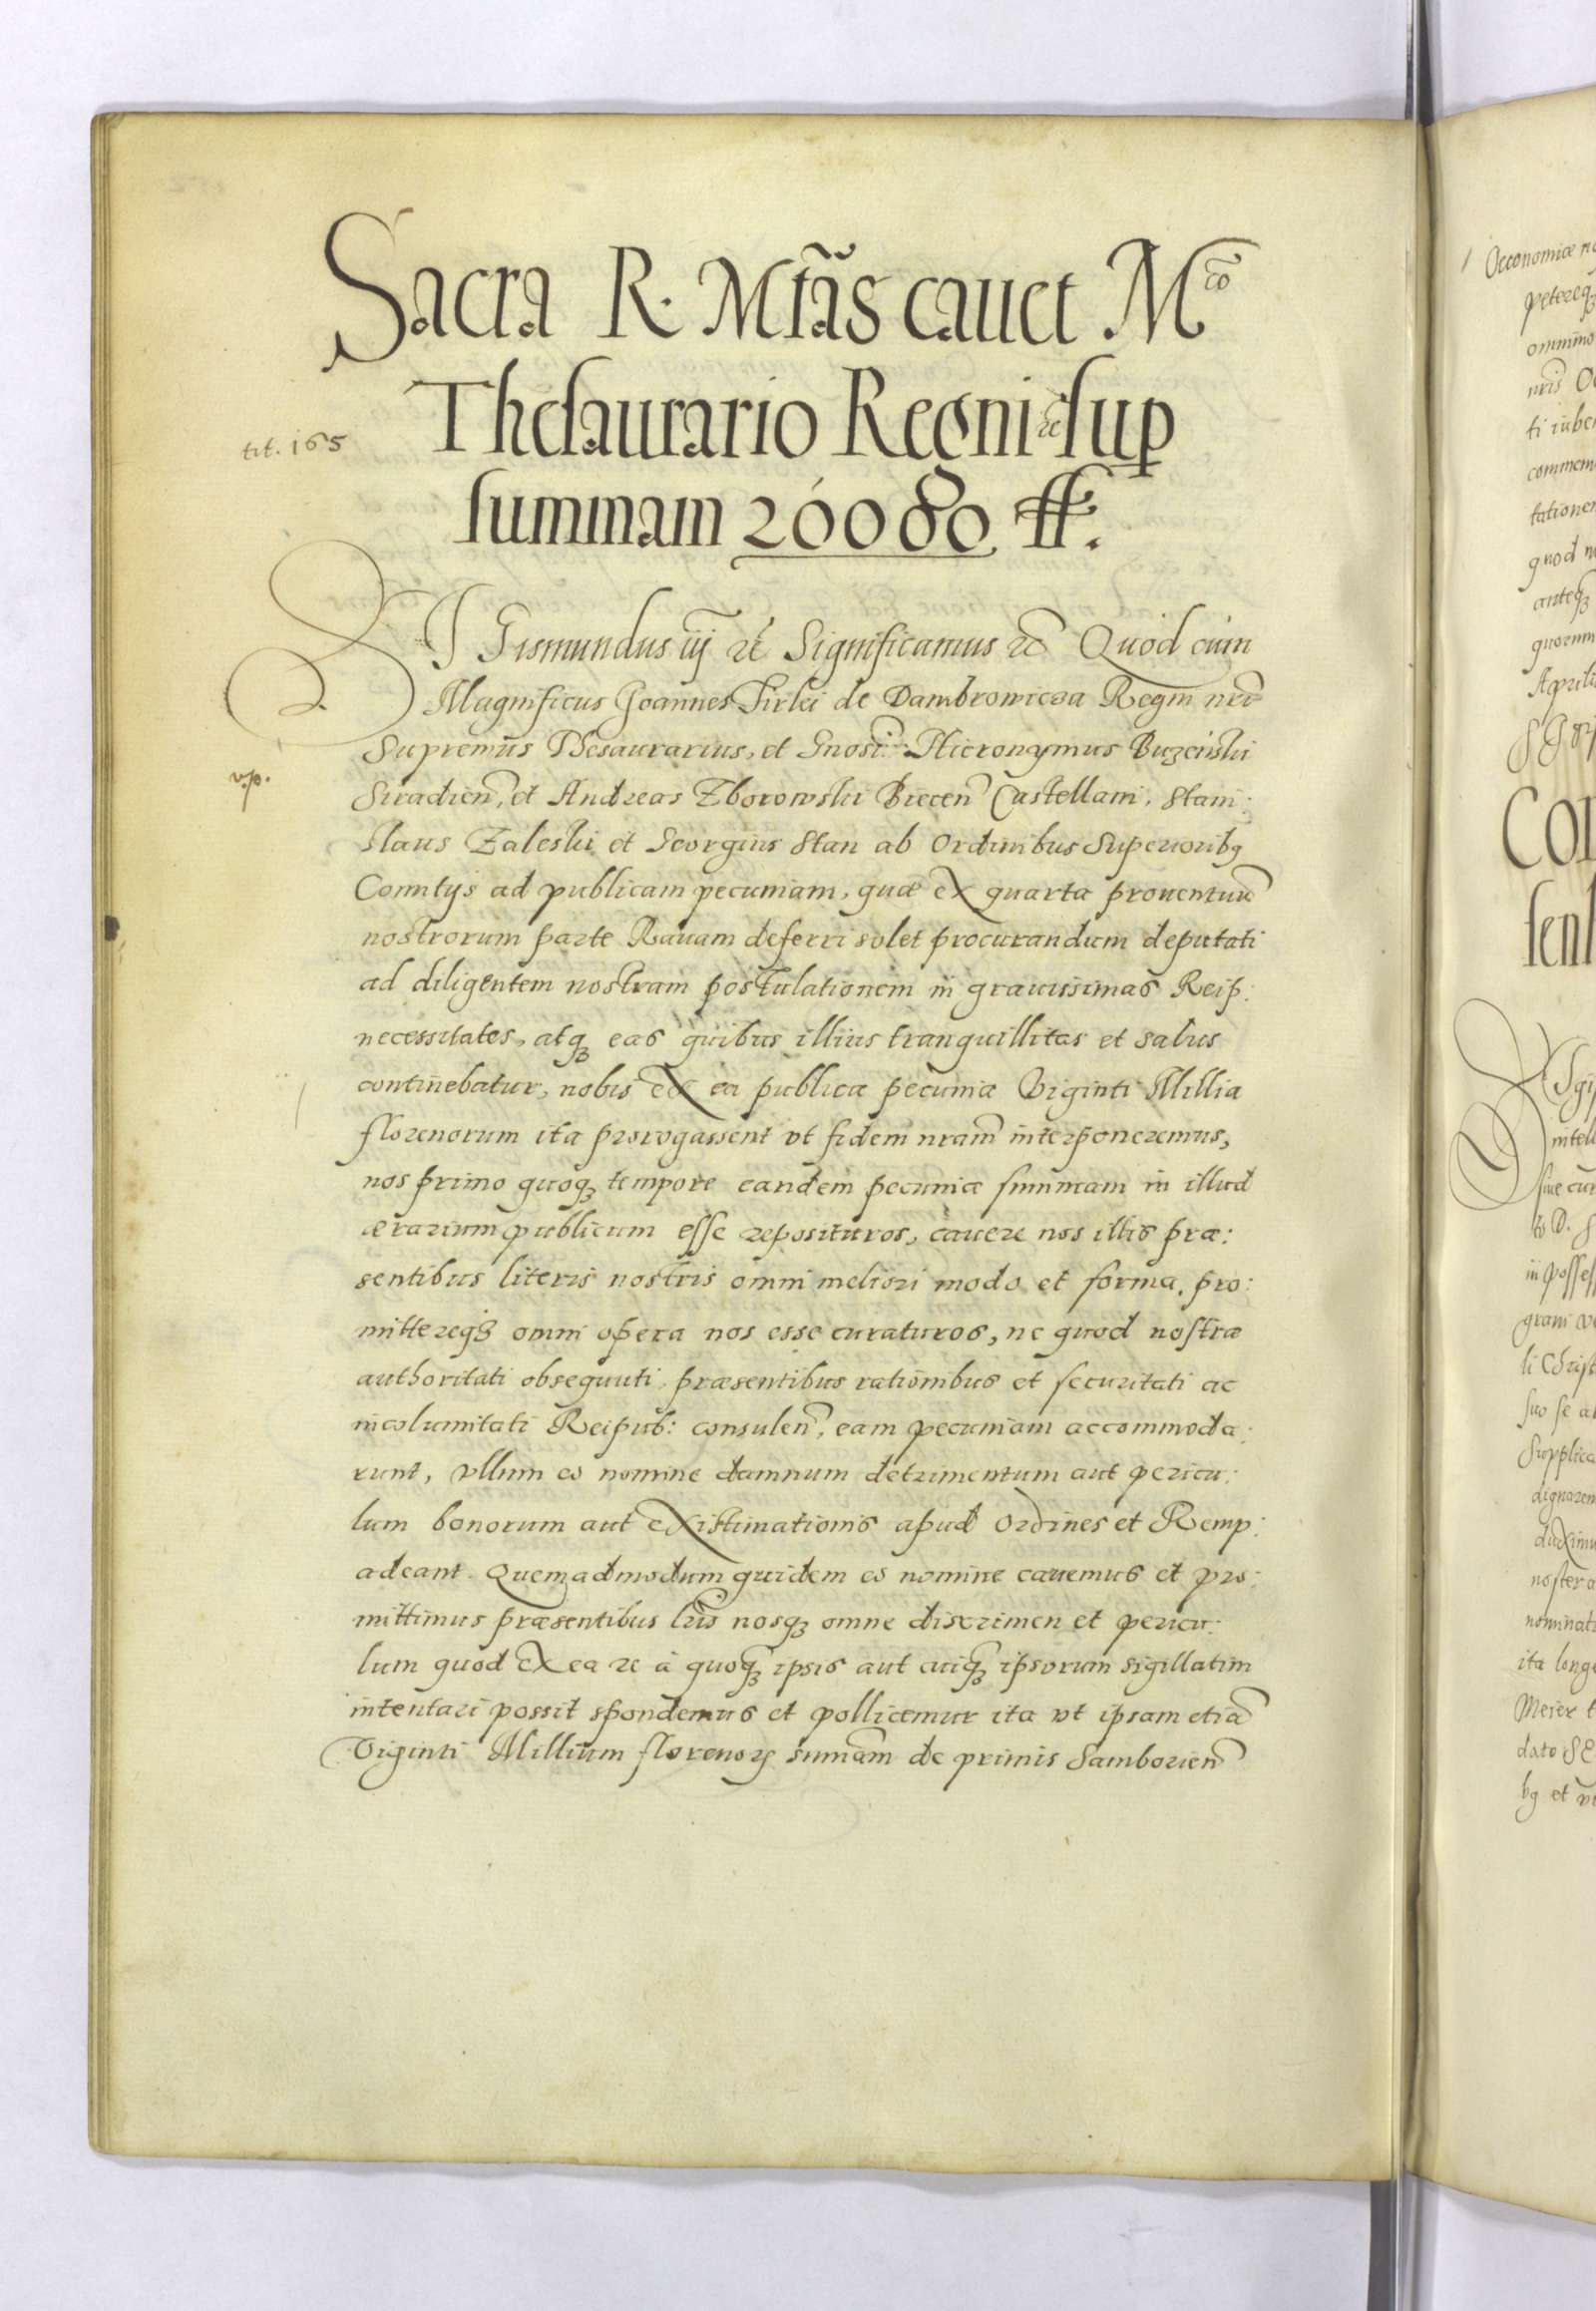 Sacra R. Mtãs cauet M^co
Thesaurario Regni etc sup
tit. 165
summam 20080 ff.
SIGismundus iij etc Significamus etc Quod cum
Magnificus Joannes Firlei de Dambrowicza Regni nri
Supremus Thesaurarius, et Gnosi: Hieronymus Buzeński
v.p.
Siradien, et Andreas Zborowski Biecen Castellani, Stani:
slaus Zaleski et Georgius Stan ab Ordinibus Superioribq
Comitijs ad publicam pecuniam, quæ ex quarta prouentuu
nostrorum parte Rauam deferri solet procurandum deputati
ad diligentem nostram postulationem in grauissimas Reip:
necessitates, atq eas quibus illius tranquillitas et salus
continebatur, nobis ex ea publica pecunia Viginti Millia
florenorum ita prorogassent vt fidem nram interponeremus,
nos primo quoq tempore eandem pecuniæ summam in illud
ærarium publicum esse reposituros, cauere nos illis præ:
sentibus literis nostris omni meliori modo et forma, pro:
mittereq omni opera nos esse curaturos, ne quod nostræ
authoritati obsequuti, præsentibus rationibus et securitati ac
incolumitati Reipub: consulen, eam pecuniam accommoda:
runt, vllum eo nomine damnum detrimentum aut pericu:
lum bonorum aut existimationis apud Ordines et Remp:
adeant. Quemadmodum quidem eo nomine cauemus et pro:
mittimus præsentibus lris nosq omne discrimen et pericu:
lum quod ex ea re à quoq ipsis aut cuiq ipsorum sigillatim
intentari possit spondemus et pollicemur ita vt ipsam etia
Viginti Millium florenor sumam de primis Samborien
Oeconomiæ
petereq
omnino
nris
ti
commem
tationem
quod
anteq
quorum
Aprilis
COI
intell
siue
D.
in posses
gram
li Christ
suo se
Supplica
dignarem
duximus
noster
nominat
ita long
dato
bq et